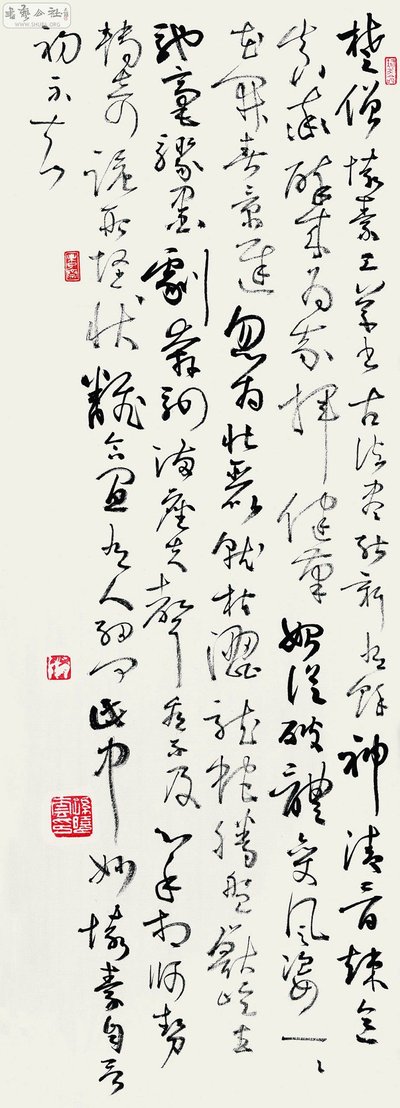 书艺公社
WWW.SHUFA.ORG
楚僧懷素工草書古法盡能新有餘神清骨竦意
真率醉來為我揮健筆始從破體變風姿一一
花開春景遲忽為壯麗就枯澀龍蛇騰盤獸屹立
馳毫驟墨劇奔駟滿座失聲看不及心手相師勢
轉奇詭形怪狀翻合宜有人細問此中妙懷素自言
初不知
孫曉雲印